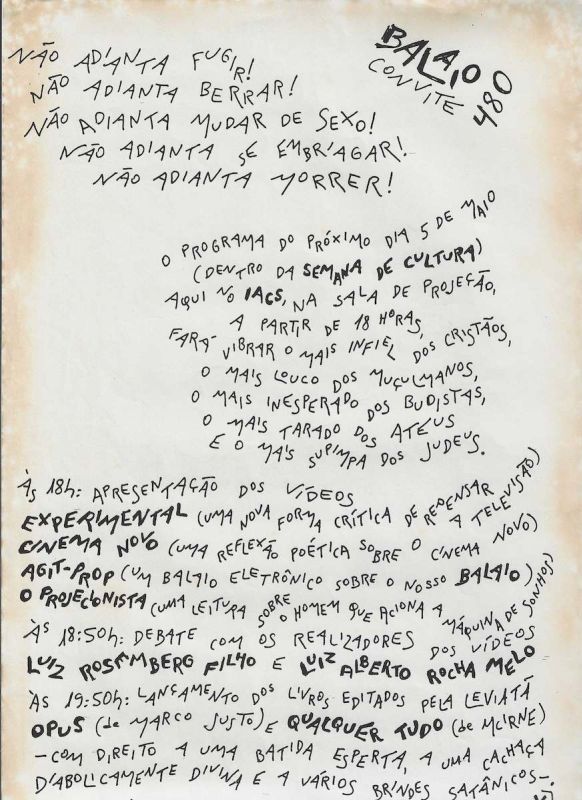 BALAIO
CONVITE
480
NÃO ADIANTA FUGIR!
NÃO ADIANTA BERRAR!
NÃO ADIANTA MUDAR DE SEXO!
NÃO ADIANTA SE EMBRIAGAR!
NÃO ADIANTA MORRER!
O PROGRAMA DO PRÓXIMO DIA 5 DE MAIO
(DENTRO DA SEMANA DE CULTURA)
AQUI NO IACS, NA SALA DE PROJEÇÃO,
A PARTIR DE 18 HORAS,
FARÁ VIBRAR O MAIS INFIEL DOS CRISTÃOS,
O MAIS LOUCO DOS MUÇULMANOS,
O MAIS INESPERADO DOS BUDISTAS,
O MAIS TARADO DOS ATEUS
E O MAIS SUPIMPA DOS JUDEUS.
ÀS 18h: APRESENTAÇÃO DOS VÍDEOS
EXPERIMENTAL (UMA NOVA FORMA CRÍTICA DE REPENSAR A TELEVISÃO)
CINEMA NOVO (UMA REFLEXÃO POÉTICA SOBRE O CINEMA NOVO)
AGIT-PROP (UM BALAIO ELETRÔNICO SOBRE O NOSSO BALAIO)
O PROJECIONISTA (UMA LEITURA SOBRE O HOMEM QUE ACIONA A MÁQUINA DE SONHOS)
ÀS 18:50h: DEBATE COM OS REALIZADORES DOS VÍDEOS
LUIZ ROSEMBERG FILHO E LUIZ ALBERTO ROCHA MELO
ÀS 19:50h: LANÇAMENTO DOS LIVROS EDITADOS PELA LEVIATÃ
OPUS (de MARCO JUSTO) E QUALQUER TUDO (de MCIRNE)
- COM DIREITO A UMA BATIDA ESPERTA, A UMA CACHAÇA
DIABOLICAMENTE DIVINA E A VÁRIOS BRINDES SATÂNICOS -.